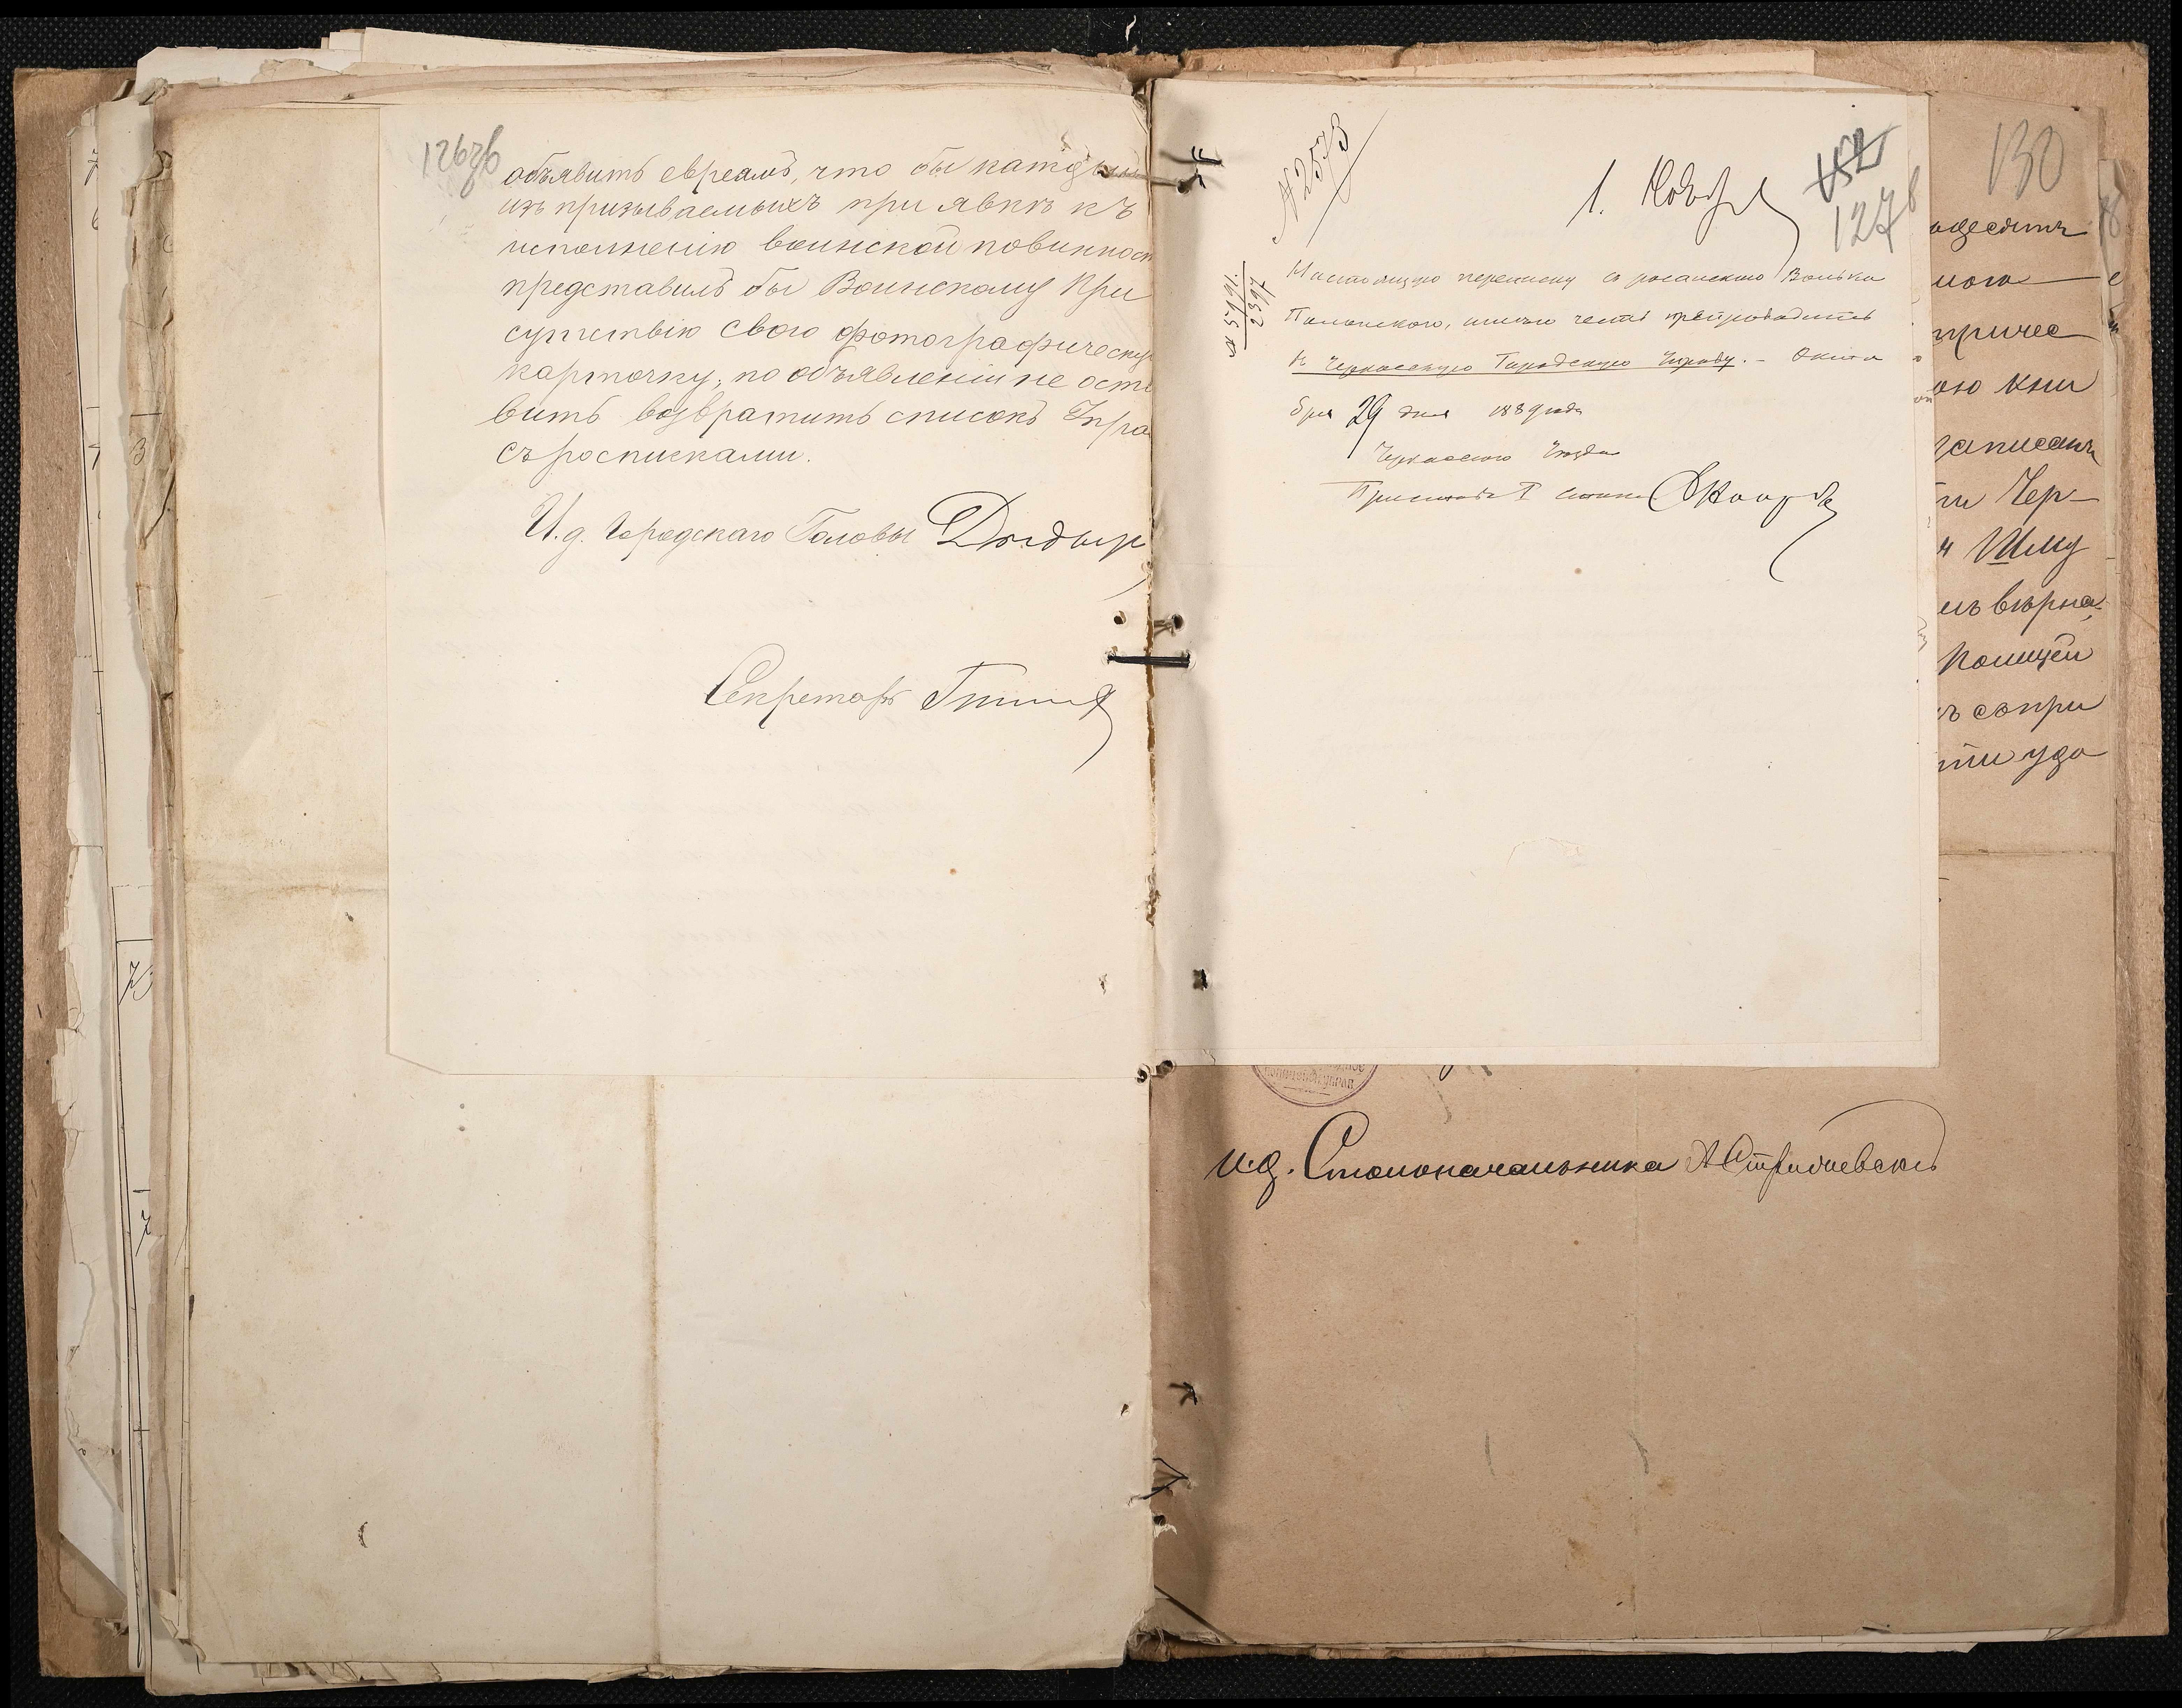 126об
объявить евреамъ, что бы каждый
изъ призываемыхъ при явкѣ къ
исполненію воинской повинност
представилъ бы Воинскому При
сутствію свою фотографическую
карточку, по объявленіи не оста
вить возвратить списокъ Упра
съ росписками.
И. д. Городскаго Головы
Секретарь
№ 2573
1. Ноября
152
127
Настоящую переписку съ роспискою Волька
Полонского, имѣю честь препроводить
въ Черкасскую Городскую Управу. – Октя
бря 29 дня 1889 года
Черкасского Уѣзда
Приставъ 1 стана
130
мого
ою кни
записан
ти Чер-
Шму
вѣрна
Полицей
съ при
ти удо
И. д. Столоначальника